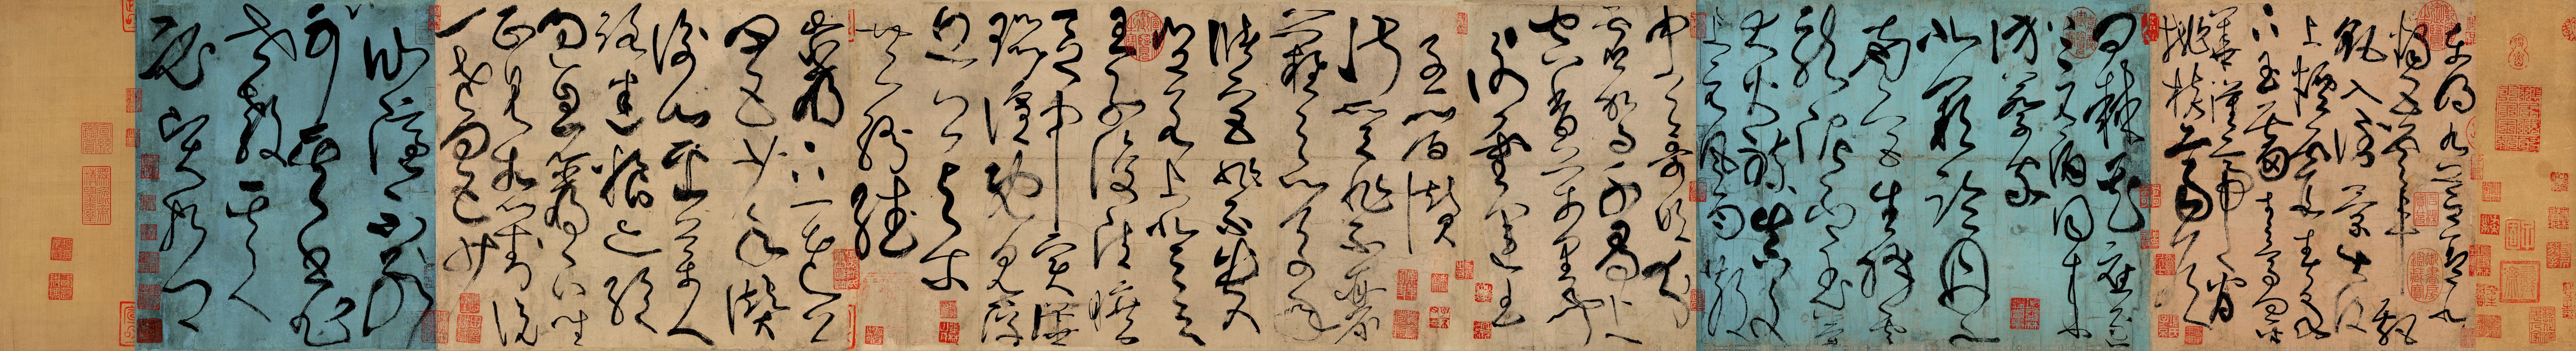 東明九芝蓋北
燭五雲車飄
飖入倒景出没
上煙霞春泉
下玉霤青鳥向金
華漢帝看
桃核齊侯
問棘花應逐
上元酒同來
訪蔡家
北闕臨丹水
南宫生絳雲
龍泥印玉簡
大火煉真文
上元風雨散
中天歌吹分
虚駕千尋上
空香萬里聞
謝靈運王
子晉讚
淑質非不麗
難以之百年
儲宫非不貴
豈若上登天
王子復清曠
區中實譁
囂喧既見浮
丘公與尔
共紛繙
巖下一老公
四五少年讚
衡山採藥人
路迷糧亦絶
過息巖下坐
正見相對説
一老四五少
仙隱不别
可其書非世
教其人
必賢哲